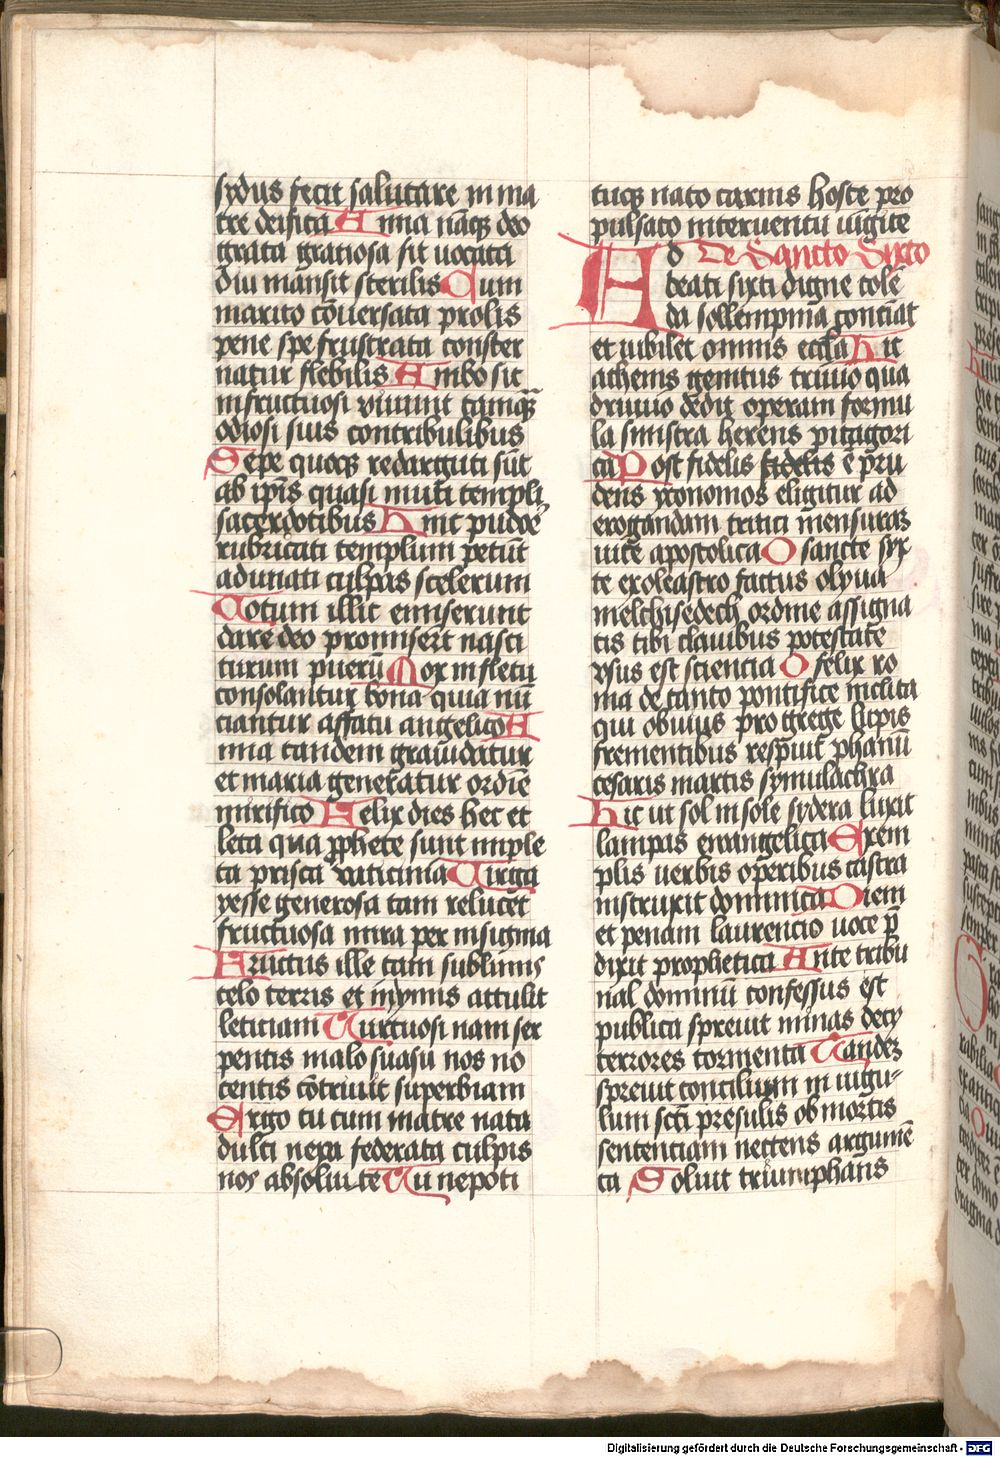 sydus fecit salutare in ma
tre deifica Anna nāq deo
grata gratiosa sit uocata
diu mansit sterilis Cum
marito cōuersata prolis
pene spe frustrata conster
natur flebilis Ambo sic
infructuosi viuunt tamq̄
odiosi suis contribulibus
Sepe quoqꝫ redarguti sūt
ab ip̄is quasi muti templi
sacerdotibus Hinc pudoē
rubricati templum petūt
adunati culpas scelerum
Uotum illic emiserunt
dare deo promiserūt nasci
turum puerū Mox in fletu
consolantur bona quia nū
ciantur affatu angelico A
nna tandem grauidatur
et maria generatur ordīe
mirifico Felix dies hec et
leta qua ꝓphete sunt imple
ta prisca vaticinia Uirga
yesse generosa tam relucet
fructuosa mira per insigma
Fructus ille tam sublimis
celo terris et inymis attulit
leticiam Uirtuosi nam ser
pentis malo suasu nos no
centis cōtriuit superbiam
Ergo tu cum matre nata
dulci nepa federata culpis
nos absoluite Tu nepoti
tuoqꝫ nato carnis hoste pro
pulsato interuentu iugite
Ad De Sancto Sixto
beati sixti digne colē
da sollempnia conciat
et iubilet omnis eccl̄a Hic
athenis genitus triuio qua
driuuio dedit operam formu
la sinistra herens pitagori
ca Post fidelis fidelis ē pru
dens yconomos eligitur ad
erogandam tritici mensuraꝫ
uite apostolica O sancte syx
te ex oleastro factus olyua
melchisedech ordine assigna
tis tibi clauibus potestate
vsus est sciencia O felix ro
ma de tanto pontifice inclita
qui obuius pro grege lupis
frementibus respuit phanū
cesaris martis symulachra
Hic ut sol in sole sydera luxit
lampas ewangelica Exem
plis uerbis operibus castra
instruxit dominica Diem
et penam laurencio uoce p̄
dixit prophetica Ante tribu
nal dominū confessus est
publica spreuit minas decy
terrores tormenta Tandeꝫ
spreuit concilium in iugu
lum sc̄ti presulis ob mortis
sentenciam nectens argumē
ta Soluit triumphans
Digitalisierung gefördert durch die Deutsche Forschungsgemeinschaft - DFG